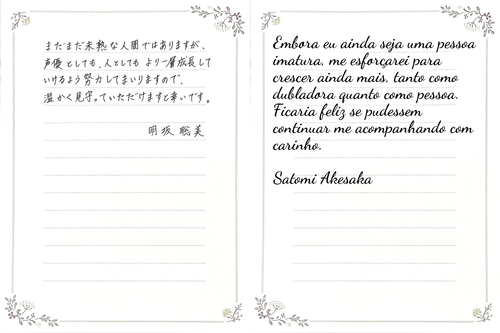 まだまだ未熟な人間ではありますが、
声優としても、人としても より一層成長して
いけるよう努力してまいりますので、
温かく見守っていただけますと幸いです。
明坂 聡美
Embora eu ainda seja uma pessoa
imatura, me esforçarei para
crescer ainda mais, tanto como
dubladora quanto como pessoa.
Ficaria feliz se pudessem
continuar me acompanhando com
carinho.
Satomi Akesaka